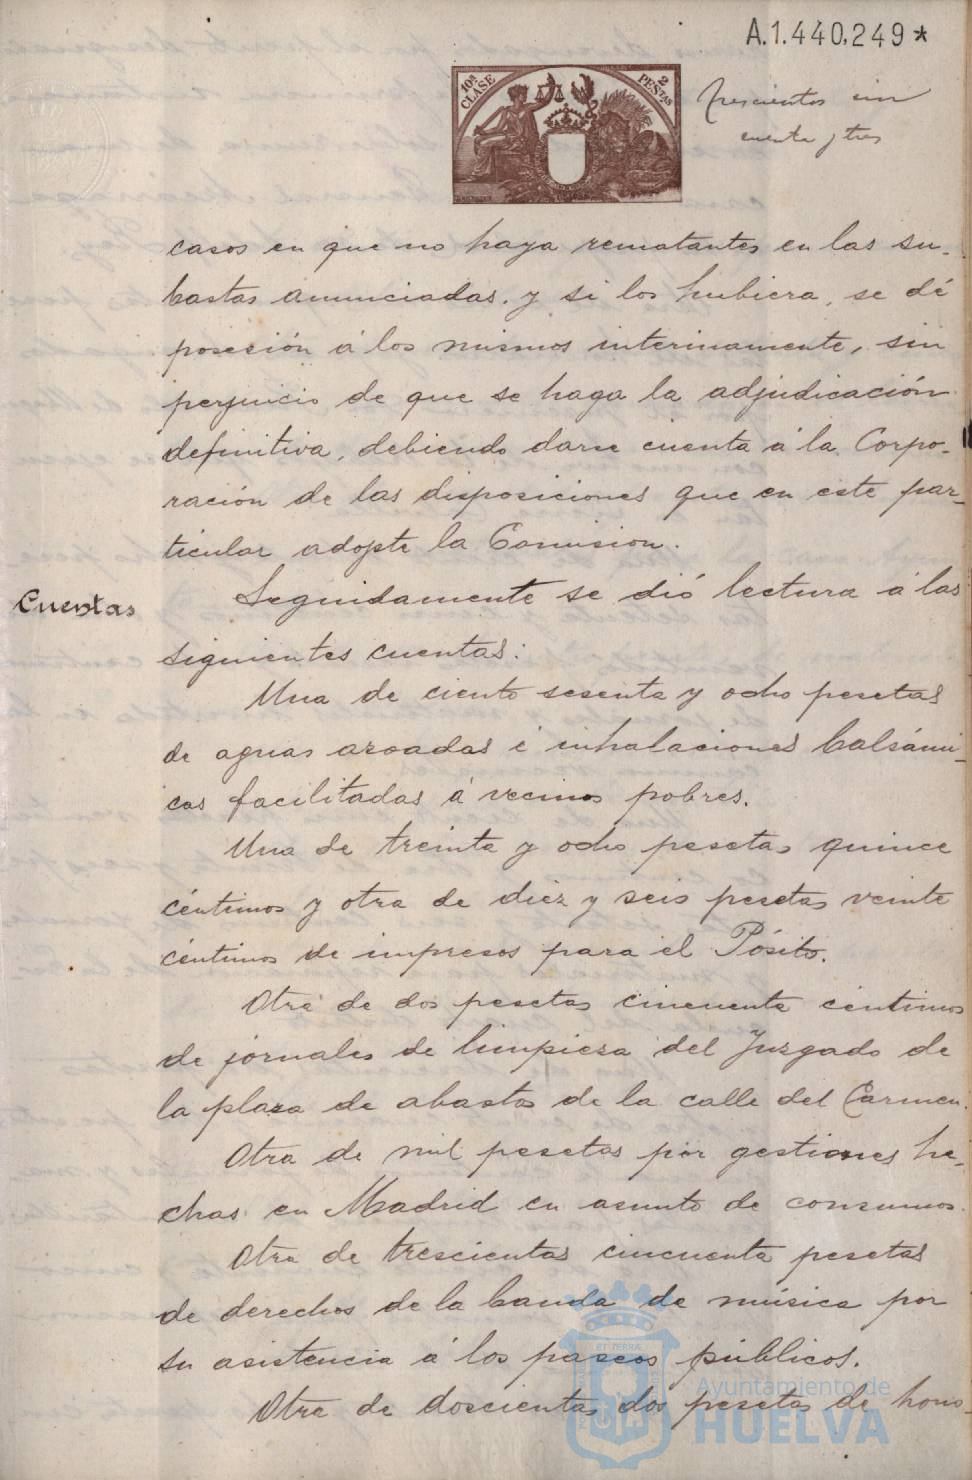 A.1.440.249*
10ª CLASE
2 PESTAS
Trescientos cin
cuenta y tres
casos en que no haya rematantes en las su-
bastas anunciadas, y si los hubiera, se dé
posesión á los mismos interinamente, sin
perjuicio de que se haga la adjudicación
definitiva, debiendo darse cuenta á la Corpo-
ración de las disposiciones que en este par-
ticular adopte la Comision.
Cuentas
Seguidamente se dió lectura á las
siguientes cuentas:
Una de ciento sesenta y ocho pesetas
de aguas azoadas é inhalaciones balsámi-
cas facilitadas á vecinos pobres.
Una de treinta y ocho pesetas quince
céntimos y otra de diez y seis pesetas veinte
céntimos de impresos para el Pósito.
Otra de dos pesetas cincuenta céntimos
de jornales de limpieza del Juzgado de
la plaza de abastos de la calle del Carmen.
Otra de mil pesetas por gestiones he-
chas en Madrid en asunto de consumos.
Otra de trescientas cincuenta pesetas
de derechos de la banda de música por
su asistencia á los paseos públicos.
Otra de doscientas dos pesetas de hono-
Ayuntamiento de
HUELVA